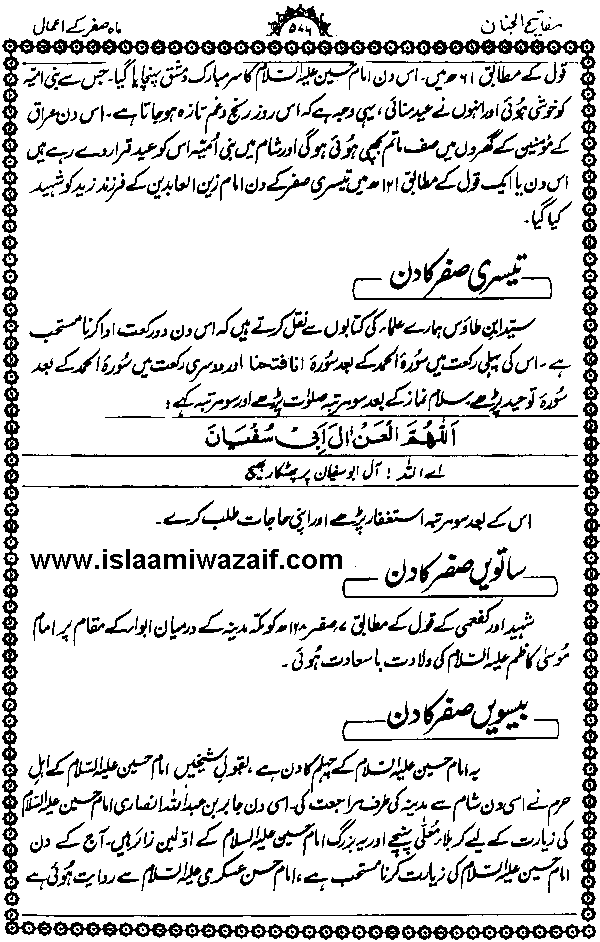 مفاتیح الجنان
۵۷۶
ماہ صفر کے اعمال
قول کے مطابق ۶۱ھ میں۔ اس دن امام حسین علیہ السلام کا سر مبارک دمشق پہنچایا گیا۔ جس سے بنی امیہ
کو خوشی ہوئی اور انہوں نے عید منائی، یہی وجہ ہے کہ اس روز رنج و غم تازہ ہو جاتا ہے۔ اس دن عراق
کے مومنین کے گھروں میں صف ماتم بچھی ہوئی ہوگی اور شام میں بنی اُمیہ اس کو عید قرار دے رہے ہیں
اس دن یا ایک قول کے مطابق ۱۲۱ھ میں تیسری صفر کے دن امام زین العابدین کے فرزند زید کو شہید
کیا گیا۔
تیسری صفر کا دن
سید ابن طاؤس ہمارے علماء کی کتابوں سے نقل کرتے ہیں کہ اس دن دو رکعت ادا کرنا مستحب
ہے۔ اس کی پہلی رکعت میں سورۂ الحمد کے بعد سورۂ انا فتحنا اور دوسری رکعت میں سورۂ الحمد کے بعد
سورۂ توحید پڑھے سلام نماز کے بعد سو مرتبہ صلوات پڑھے اور سو مرتبہ کہے:
اَللّٰهُمَّ الْعَنْ اٰلَ اَبِیْ سُفْیَانَ
اے اللہ! آل ابو سفیان پر پھٹکار بھیج
اس کے بعد سو مرتبہ استغفار پڑھے اور اپنی حاجات طلب کرے۔
www.islaamiwazaif.com
ساتویں صفر کا دن
شہید اور کفعمی کے قول کے مطابق ۷ صفر ۱۲۸ھ کو مکہ مدینہ کے درمیان ابواء کے مقام پر امام
موسیٰ کاظم علیہ السلام کی ولادت با سعادت ہوئی۔
بیسویں صفر کا دن
یہ امام حسین علیہ السلام کے چہلم کا دن ہے، بقول شیخین امام حسین علیہ السلام کے اہل
حرم نے اسی دن شام سے مدینہ کی طرف مراجعت کی۔ اسی دن جابر بن عبداللہ انصاری امام حسین علیہ السلام
کی زیارت کے لیے کربلا معلّٰی پہنچے اور یہ بزرگ امام حسین علیہ السلام کے اولین زائر ہیں۔ آج کے دن
امام حسین علیہ السلام کی زیارت کرنا مستحب ہے، امام حسن عسکری علیہ السلام سے روایت ہوئی ہے